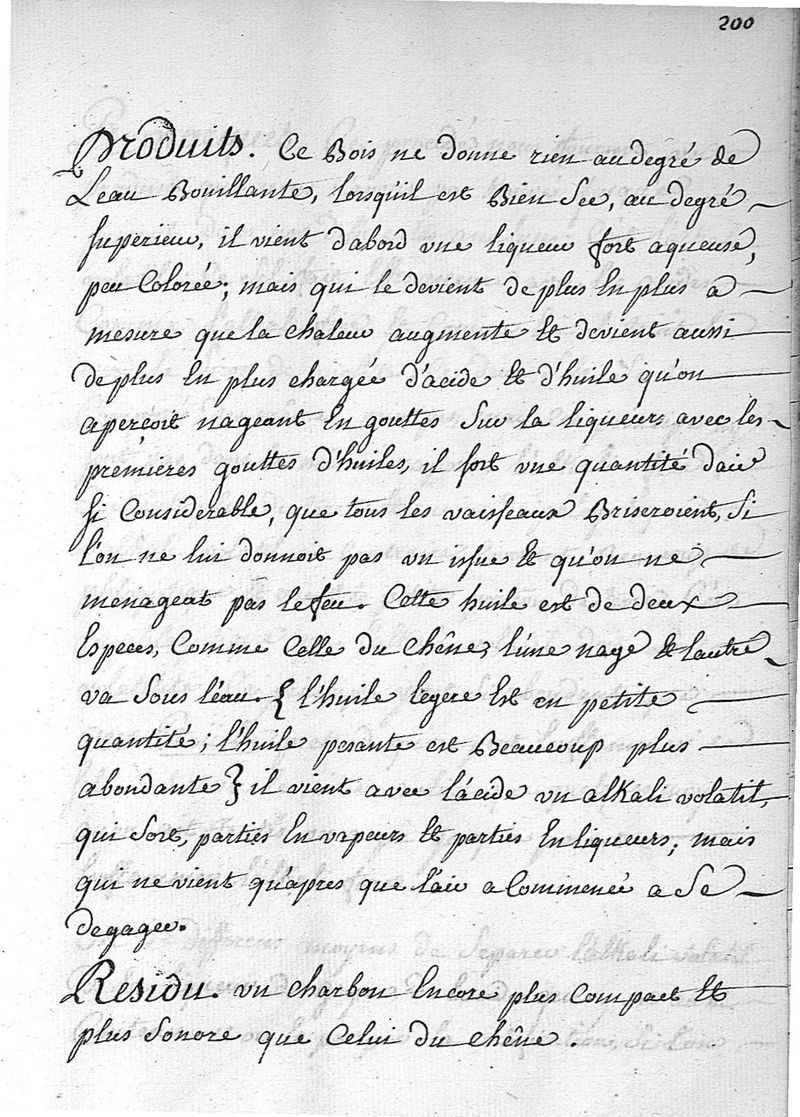 200
Produits. Ce Bois ne donne rien au degré de
Leau Bouillante, lorsqu'il est Bien Sec, au degré
superieur, il vient d'abord vne liqueur fort aqueuse,
peu Colorée; mais qui le devient de plus En plus a
mesure que la chaleur augmente Et devient aussi
de plus En plus chargée d'acide Et d'huile qu'on
aperçoit nageant En gouttes Sur la liqueur; avec les
premières gouttes d'huiles, il sort vne quantité dair
si Considerable, que tous les vaisseaux Briseroient, Si
l'on ne lui donnoit pas vn issue Et qu'on ne
menageat pas le feu. Cette huile est de deux
Especes, Comme Celle du chêne; l'une nage Et lautre
va Sous l'eau. { l'huile legere Est en petite
quantité; l'huile pesante est Beaucoup plus
abondante } il vient avec l'acide vn alkali volatil,
qui Sort, parties En vapeurs Et parties En liqueurs; mais
qui ne vient qu'apres que l'air a Commencé a Se
degager.
Residu. vn charbon Encore plus Compact Et
plus Sonore que Celui du chêne.